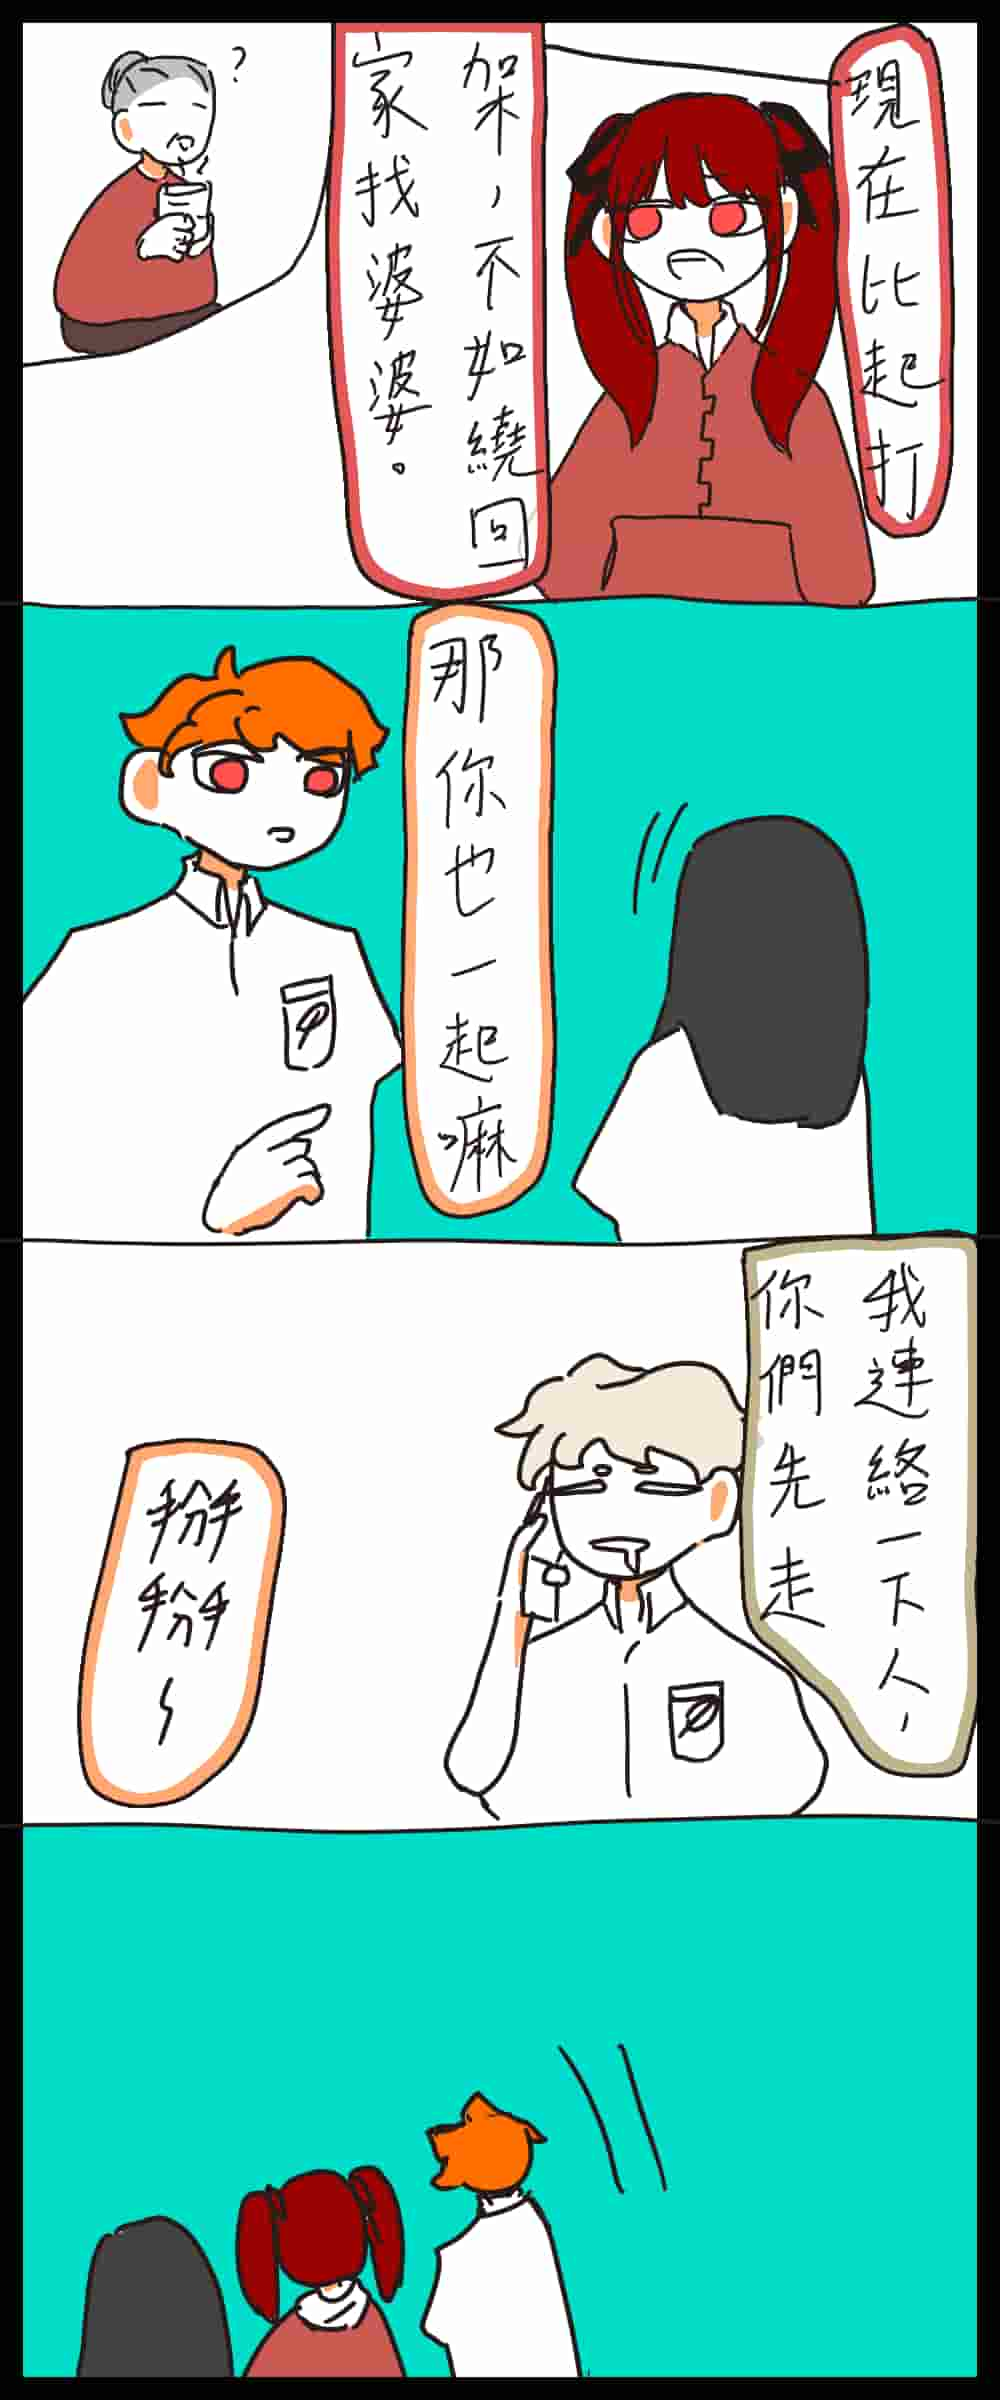 現在比起打
架，不如繞回
家找婆婆。
?
那你也一起嘛
我連絡一下人，
你們先走
掰掰～